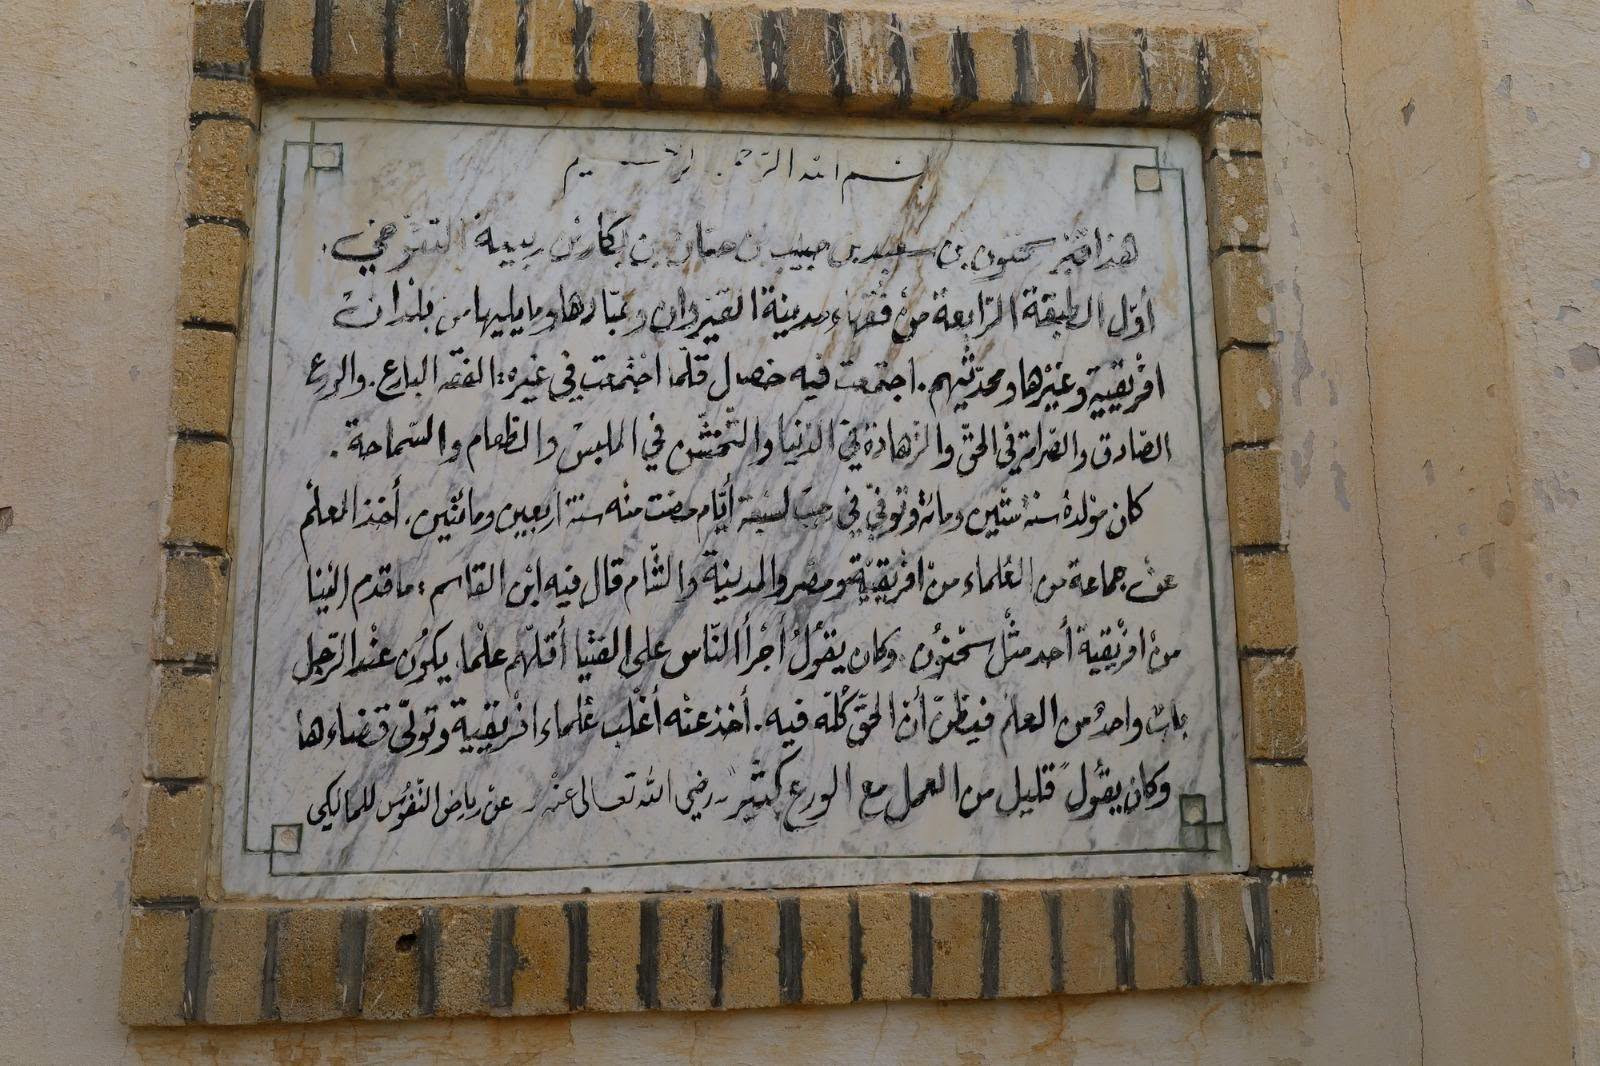 بسم الله الرحمن الرحيم
هذا قبر سحنون بن سعيد بن حبيب بن حسان بن بكار بن ربيعة التنوخي.
أوّل الطبقة الرّابعة منْ فُقهاء مدينة القيْروان وعبّادها وما يليها من بلْدان
افْريقيية وغيْرها ومحدّثيهم. اجتمعت فيه خصال قلّما اجْتمعت في غيْره: الفقْه البارع. والورع
الصّادق والصّرامة في الحقّ والزّهادة في الدّنيا والتّخشّن في الملبس والطّعام والسّماحة.
كان مولدهُ سنة ستّين ومائة وتُوفّي في رجب لسبْعة أيّام مضت منْه سنة أربعين ومائتين. أخذ المعلْم
عنْ جماعة من العُلماء منْ افْريقيّة ومصْر والمدينة والشّام قال فيه ابْن القاسم: ما قدم اليْنا
منْ افْريقية أحد مثْل سحْنُون. وكان يقُولُ أجْرأ النّاس على الفتْيا أقلّهم علْما. يكُون عنْد الرّجل
بابٌ واحدٌ من العلم فيظنّ أنّ الحقّ كُلّه فيه. أخذ عنْه أغْلب عُلماء افْريقيية وتولّى قضاءها
وكان يقُول "قليل من العمل مع الورع كثير" - رضي الله تعالى عنْه - عنْ رياض النّفُوس للمالكي